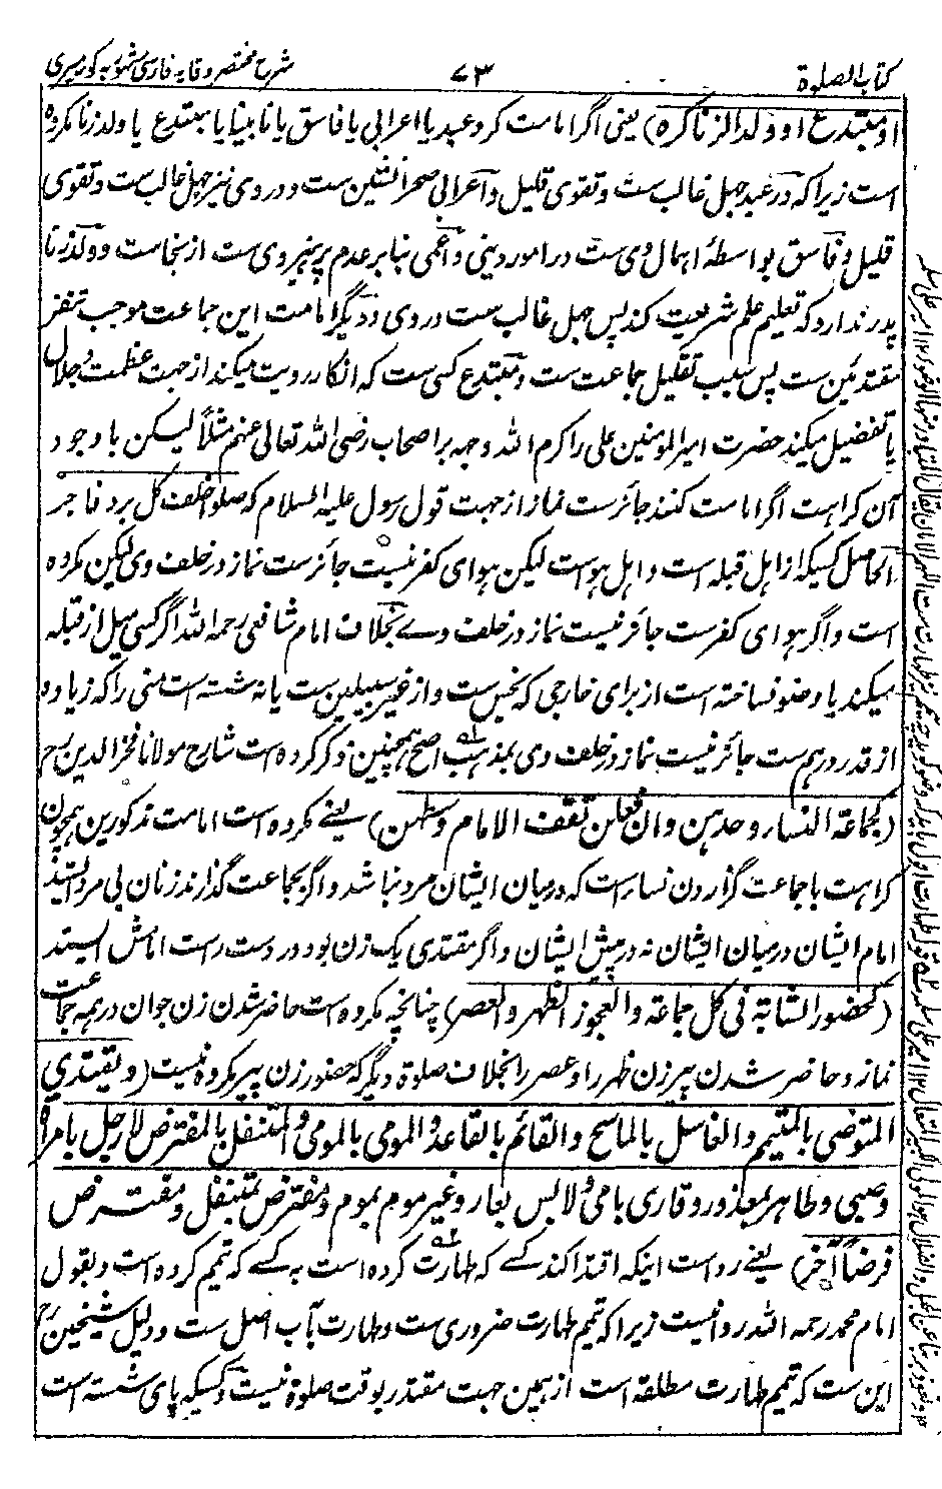 کتاب الصلوة
۷۳
شرح مختصر وقایه فارسی مشهور به کور میری
او مبتدع او ولد الزنا کره) یعنی اگر امامت کرد عبد یا اعرابی یا فاسق یا نابینا یا مبتدع یا ولد زنا مکروه
است زیرا که در عبد جهل غالب ست و تقوی قلیل و اعرابی صحرا نشین ست و در وی نیز جهل غالب ست و تقوی
قلیل و فاسق بواسطهٔ اهمال وی ست در امور دینی و اعمی بنا بر عدم پرهیز وی ست از نجاست و ولد زنا
پدر ندارد که تعلیم علم شریعت کند پس جهل غالب ست در وی و دیگر امامت این جماعت موجب تنفر
مقتدیین ست پس سبب تقلیل جماعت ست و مبتدع کسی ست که انکار رویت میکند از جهت عظمت و جلال
یا تفضیل میکند حضرت امیر المومنین علی را کرم الله وجهه بر اصحاب رضی الله تعالی عنهم مثلاً لیکن با وجود
آن کراهت اگر امامت کنند جائز ست نماز از جهت قول رسول علیه السلام که صلوا خلف کل بر و فاجر
الحاصل کسیکه از اهل قبله است و اهل هوا ست لیکن هوای کفر نیست جائز ست نماز در خلف وی لیکن مکروه
است و اگر هوای کفر ست جائز نیست نماز در خلف وے بخلاف امام شافعی رحمه الله اگر کسی میل از قبله
میکند یا وضو نساخته است از برای خارجی که نجس ست و از غیر سبیلین ست یا نه شسته است منی را که زیاده
از قدر درهم ست جائز نیست نماز در خلف وی بمذهب اصح همچنین ذکر کرده است شارح مولانا فخر الدین رح
(کجماعة النساء وحدهن وان فعلن تقف الامام وسطهن) یعنے مکروه است امامت مذکورین همچون
کراهت با جماعت گزاردن نساء است که درمیان ایشان مرد نباشد و اگر بجماعت گذارند زنان بی مرد ایستد
امام ایشان درمیان ایشان نه در پیش ایشان و اگر مقتدی یک زن بود در دست راست امامش ایستد
(کحضور الشابة فی کل جماعة والعجوز الظهر والعصر) چنانچه مکروه است حاضر شدن زن جوان در همه جماعت
نماز و حاضر شدن پیر زن ظهر را و عصر را بخلاف صلوة دیگر که حضور زن پیر مکروه نیست (ویقتدی
المتوضی بالمتیمم والغاسل بالماسح والقائم بالقاعد والمومی بالمومی والمتنفل بالمفترض لا رجل بامراة
وصبی وطاهر بمعذور وقاری بامی ولابس بعار وغیر موم بموم ومفترض بمتنفل ومفترض
فرضاً آخر) یعنے روا ست اینکه اقتدا کند کسے که طهارت کرده است به کسے که تیمم کرده است و بقول
امام محمد رحمه الله روا نیست زیرا که تیمم طهارت ضروری ست و طهارت آب اصل ست و دلیل شیخین رح
این ست که تیمم طهارت مطلقه است از همین جهت مقتدر بوقت صلوة نیست و کسیکه پای شسته است